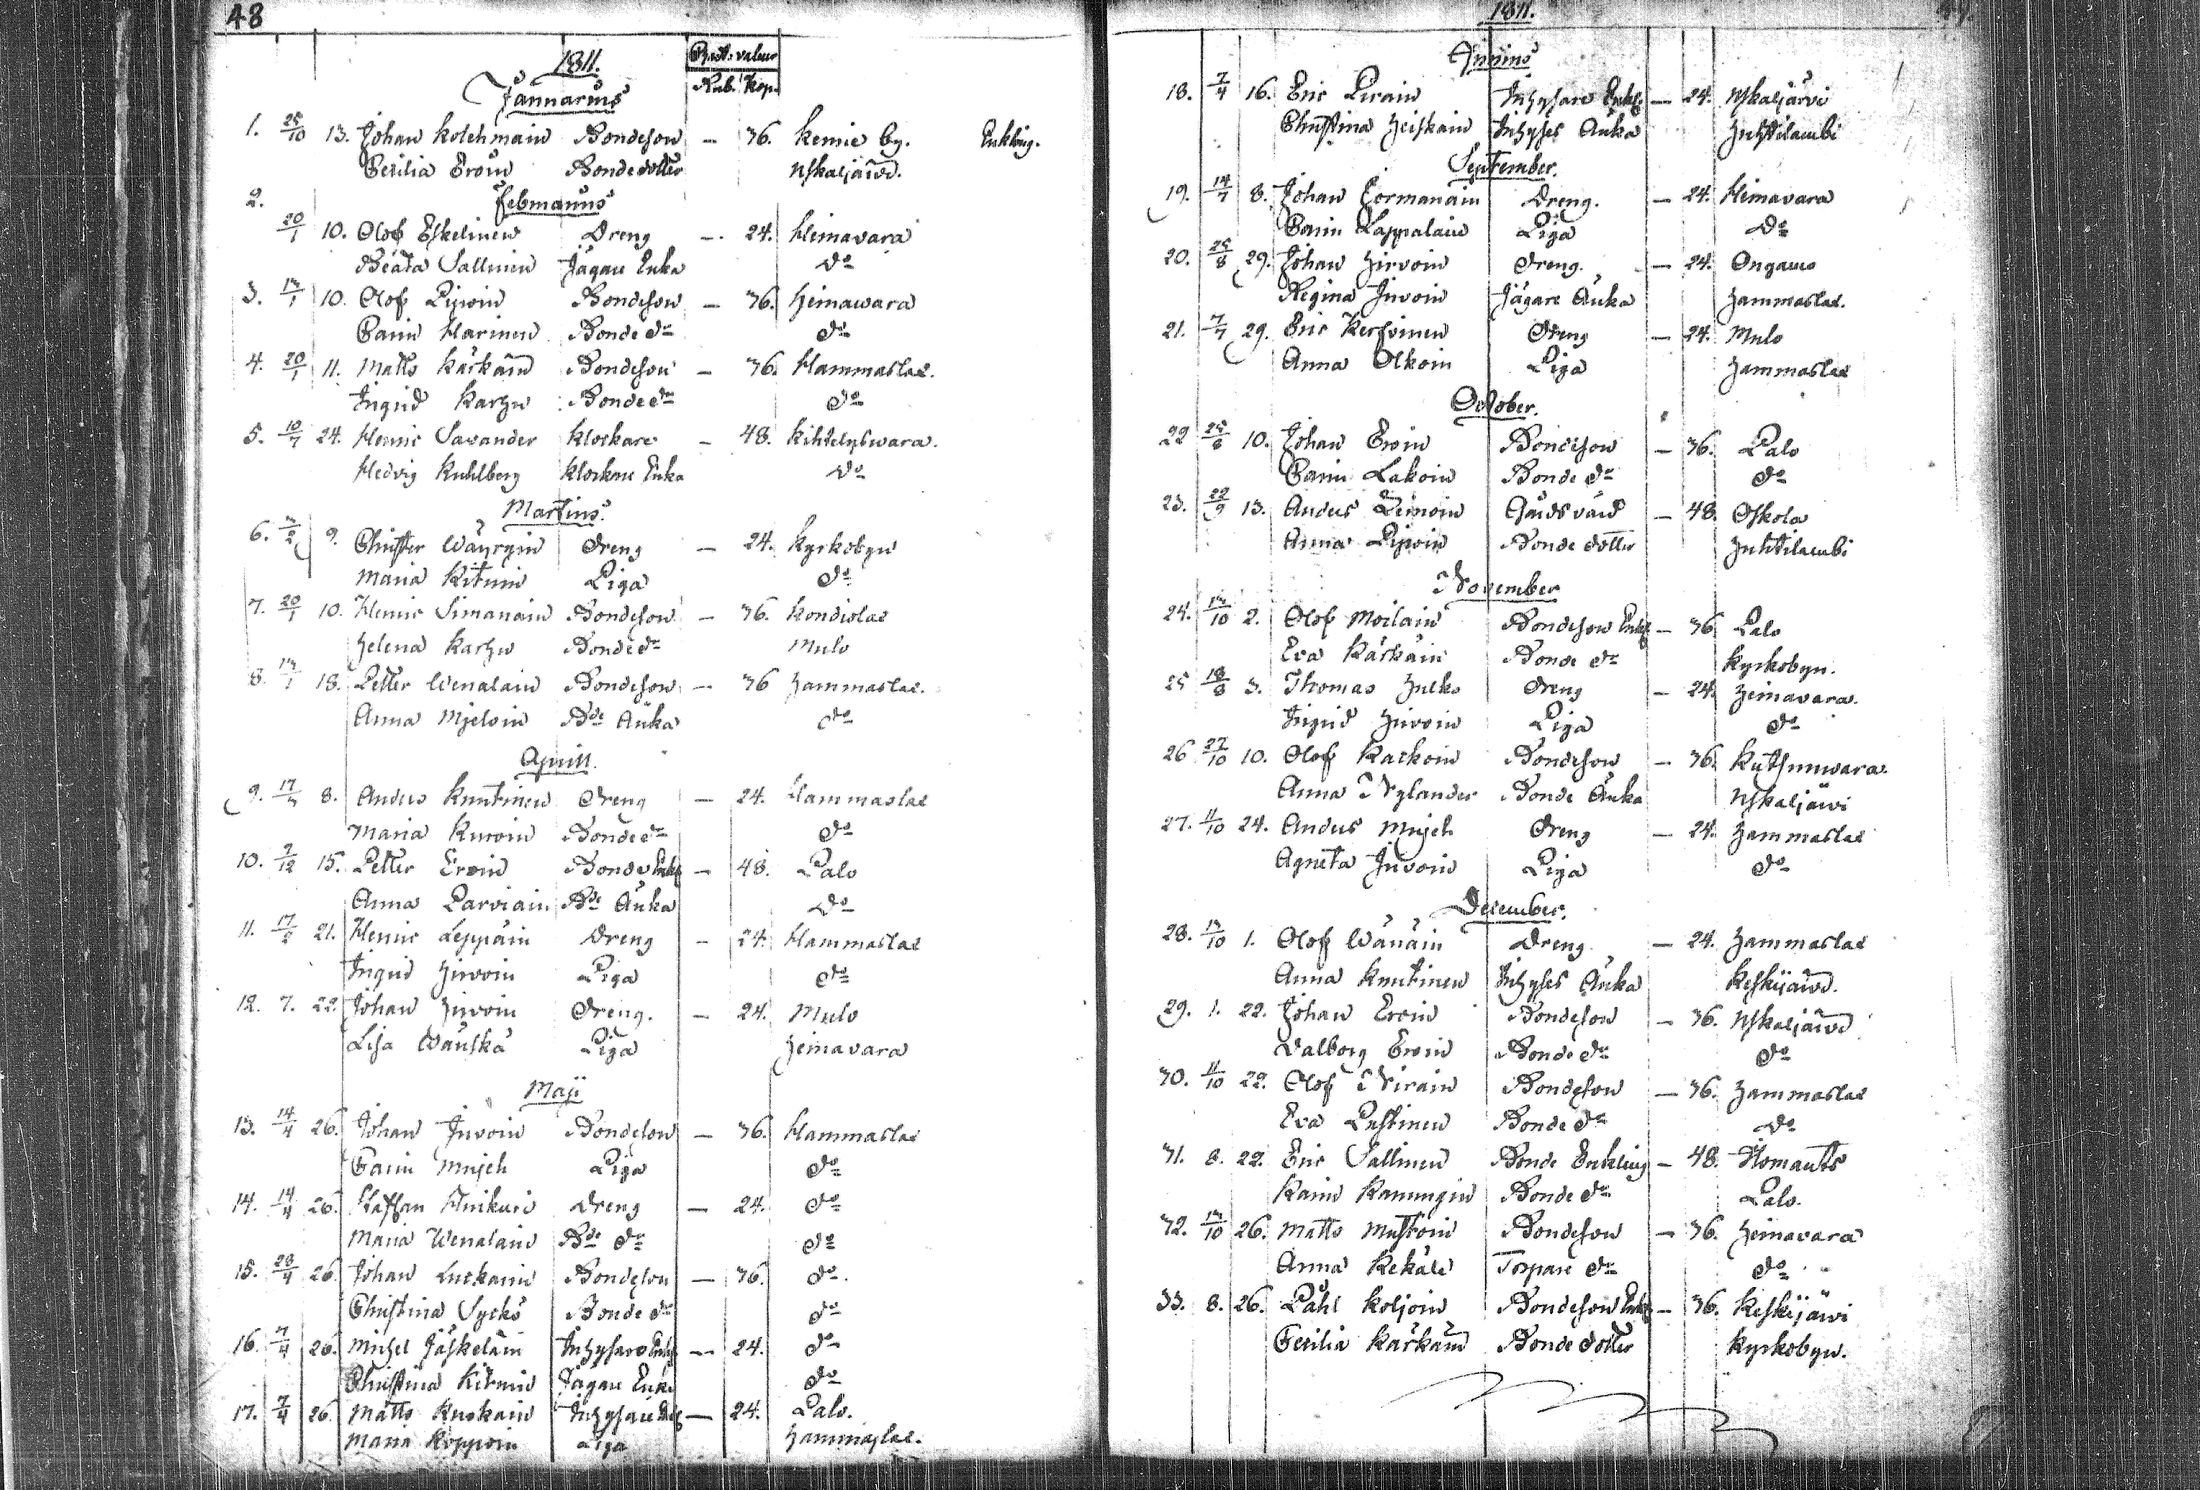 48
1811.
Rub. Kop.
Januarius
1. 25/10 13. Johan Kolehmain Bondeson — 36. Kemie by. Enkling.
Cecilia Eroin Bondedotter Uskaljärvi.
2. Februarius
20/1 10. Olof Eskelinen Dreng — 24. Heinavara
Beata Sallinen Jägare Enka Do
3. 13/1 10. Olof Piipoin Bondeson — 36. Heinawara
Carin Harinen Bonde dr do
4. 20/1 11. Matts Kärkäin Bondeson — 36. Hammaslax.
Ingrid Karhu Bonde dr do
5. 10/7 24. Henric Savander Klockare — 48. Kihtelyswara.
Hedvig Kuhlberg Klockare Enka Do
Martius.
6. 3/2 9. Christer Wäyryin Dreng — 24. Kyrkobyn
Maria Kitunin Piga do
7. 20/1 10. Henric Simanain Bondeson — 36. Kondiolax
Helena Karhu Bonde dr Mulo
8. 13/1 18. Petter Wenalain Bondeson — 36 Hammaslax.
Anna Mjeloin Bde Änka do
Aprill.
9. 17/3 8. Anders Knutinen Dreng — 24. Hammaslax
Maria Kurvin Bonde dr do
10. 2/12 15. Petter Eroin Bonde Enkl — 48. Palo
Anna Parviain Bde Änka Do
11. 17/2 21. Henric Leppäin Dreng — 24. Hammaslax
Ingrid Hirvoin Piga do
12. 7. 22. Johan Hirvoin Dreng. — 24. Mulo
Lisa Wänskä Piga Heinavara
Maji
13. 14/4 26. Johan Juvoin Bondeson — 36. Hammaslax
Carin Mujeh Piga do
14. 14/4 26. Staffan Hurikain Dreng — 24. do
Maria Wenalain Bde dr do
15. 28/4 26. Johan Luckanin Bondeson — 36. do.
Christina Sycko Bonde dr do
16. 7/4 26. Michel Jäskeläin Inhysare Enkl — 24. do
Christina Kitunin Jägare Enka do
17. 7/4 26. Matts Kuokain Inhysare Enkl — 24. Palo.
Maria Koppoin Piga Hammaslax.
1811.
Junius
18. 7/4 16. Eric Pirain Inhysare Enkl — 24. Uskaljärvi
Christina Heiskain Inhyses Änka Huhtilambi
September.
19. 14/7 8. Johan Jormanain Dreng. — 24. Heinavara
Carin Lappalain Piga Do
20. 25/8 29. Johan Hirvoin Dreng. — 24. Ongamo
Regina Juvoin Jägare Änka Hammaslax.
21. 7/7 29. Eric Kerhvinen Dreng — 24. Mulo
Anna Olkoin Piga Hammaslax
October.
22 25/8 10. Johan Eroin Bondeson — 36. Palo
Carin Lakoin Bonde dr do
23. 22/9 13. Anders Leinoin Gårdsvärd — 48. Oskola
Anna Piipoin Bonde dotter Huhtilambi
November
24. 13/10 2. Olof Moilain Bondeson Enkl — 36 Palo
Eva Kärkäin Bonde dr Kyrkobyn.
25 18/8 3. Thomas Hulko Dreng — 24. Heinavara.
Ingrid Hirvoin Piga do
26 27/10 10. Olof Kackoin Bondeson — 36. Kutsunwara.
Anna Nylander Bonde Änka Uskaljärvi
27. 11/10 24. Anders Mujeh Dreng — 24. Hammaslax
Agneta Juvoin Piga do
December.
28. 13/10 1. Olof Wänäin Dreng — 24. Hammaslax
Anna Knutinen Inhyses Änka Keskijärvi.
29. 1. 22. Johan Eroin Bondeson — 36. Uskaljärvi
Valborg Eroin Bonde dr do
30. 11/10 22. Olof Nirain Bondeson — 36. Hammaslax
Eva Pustinen Bonde dr Do
31. 8. 22. Eric Sallinen Bonde Enkling — 48. Ilomants
Karin Kanungin Bonde dr Palo.
32. 13/10 26. Matts Mustoin Bondeson — 36. Heinavara
Anna Kekäle Torpare dr do
33. 8. 26. Påhl Koljoin Bondeson Enkl — 36. Keskijärvi
Cecilia Kärkäin Bonde dotter Kyrkobyn.